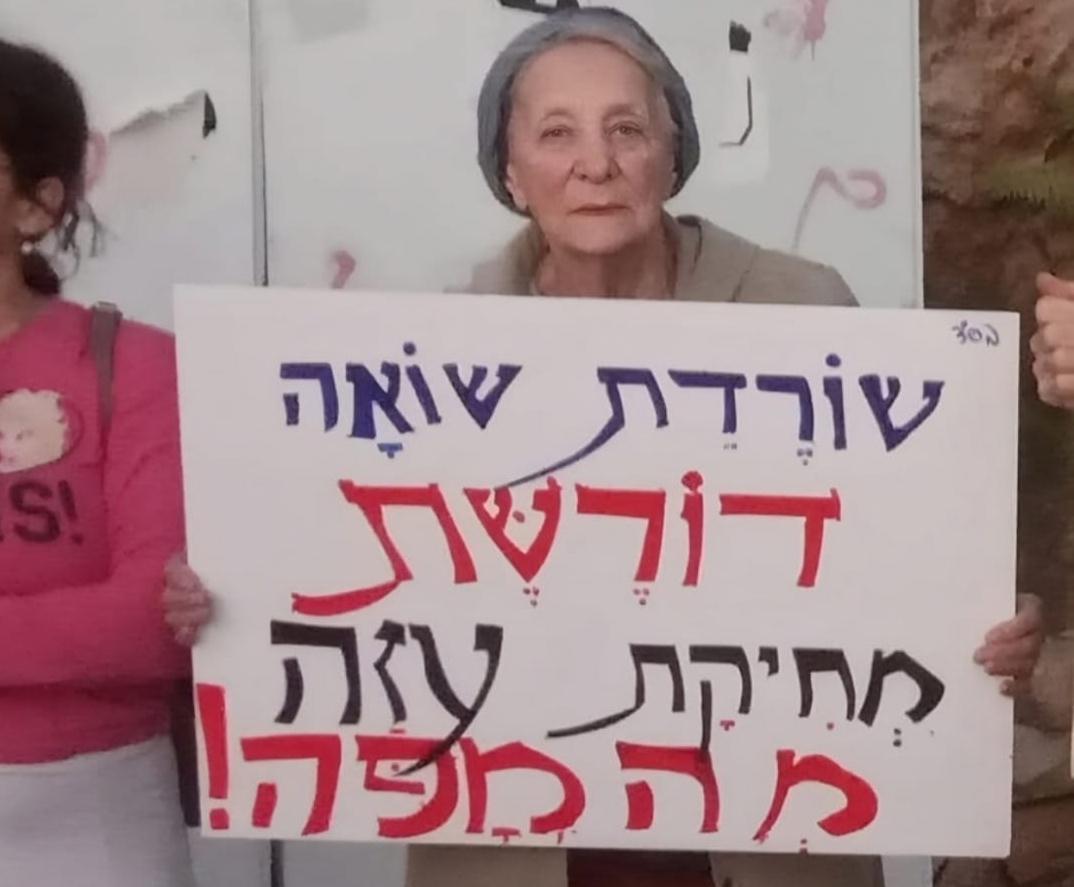 בס"ד
שׂוֹרֶדֶת שׁוֹאָה
דּוֹרֶשֶׁת
מְחִיקַת עַזָּה
מֵהַמַּפָּה!
IS!